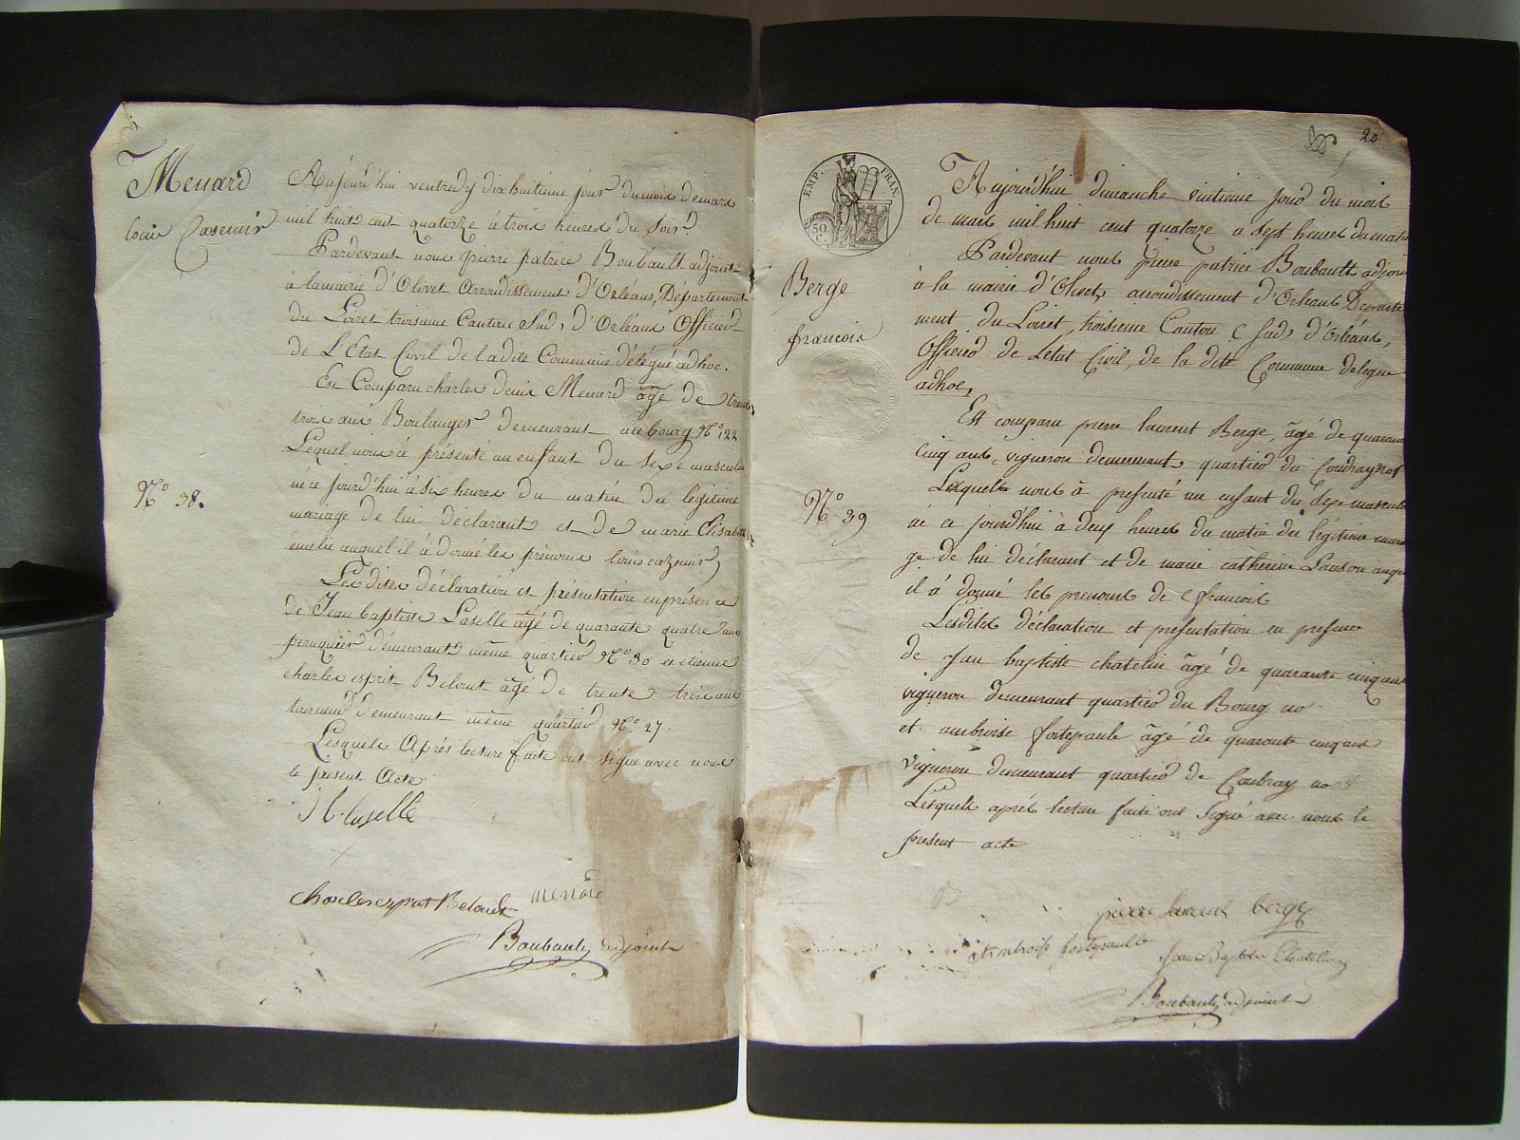 Menard
Louis Casemir
N.° 38.
Aujourd'hui ventredy dix huitieme jour du mois de mars
mil huit cent quatorze à trois heures du Soir.
Pardevant nous pierre patrice Boubault adjoint
à la mairie d'Olivet arrondissement d'Orléans, Département
du Loiret troisieme Canton Sud, d'Orléans Officier
de L'Etat Civil de la dite Commune délégué adhoc.
En Comparu charles denis Menard âgé de trente
trois ans Boulanger demeurant au bourg N.° 122
Lequel nous à présenté un enfant du Sexe masculin
né ce jourd'hui à six heures du matin du légitime
mariage de lui déclarant et de marie Elisabeth
auquel il à donné les prénoms louis cazemir
Les dites déclaration et présentation en présence
de Jean baptiste Laselle âgé de quarante quatre ans
peruquier demeurant même quartier N.° 30 et etienne
charles esprit Belouet âgé de trente trois ans
demeurant même quartier N.° 27.
Lesquels Après lecture faite ont signé avec nous
le présent Acte
Laselle
charles esprit Belouet menard
Boubault adjoint
20
EMP. FRAN.
50 C.
Berge
francois
N.° 39
Aujourd'hui dimanche vintieme jour du mois
de mars mil huit cent quatorze a sept heures du matin
Pardevant nous pierre patrice Boubault adjoint
à la mairie d'Olivet, arrondissement d'Orleans Departe
ment du Loiret, troisieme Canton Sud d'Orléans,
Officier de Letat Civil, de la ditte Commune delegue
adhoc,
Est comparu pierre laurent Berge, âgé de quarante
cinq ans, vigneron demeurant quartier du Coudray no
Lesquels nous à presenté un enfant du Sexe masculin
né ce jourdhui à deux heures du matin du légitime maria
ge de lui déclarant et de marie catherine auquel
il à donné les prenoms de francois
Lesdites déclaration et presentation en presence
de Jean baptiste chatelin âgé de quarante cinq ans
vigneron demeurant quartier du Bourg no
et ambroise fortepaule âgé de quarante cinq ans
vigneron demeurant quartier de Coudray no
Lesquels aprés lecture faite ont Signé avec nous le
present acte
pierre laurent berge
ambroise fortepaulle Jean Baptiste Chatelin
Boubault adjoint